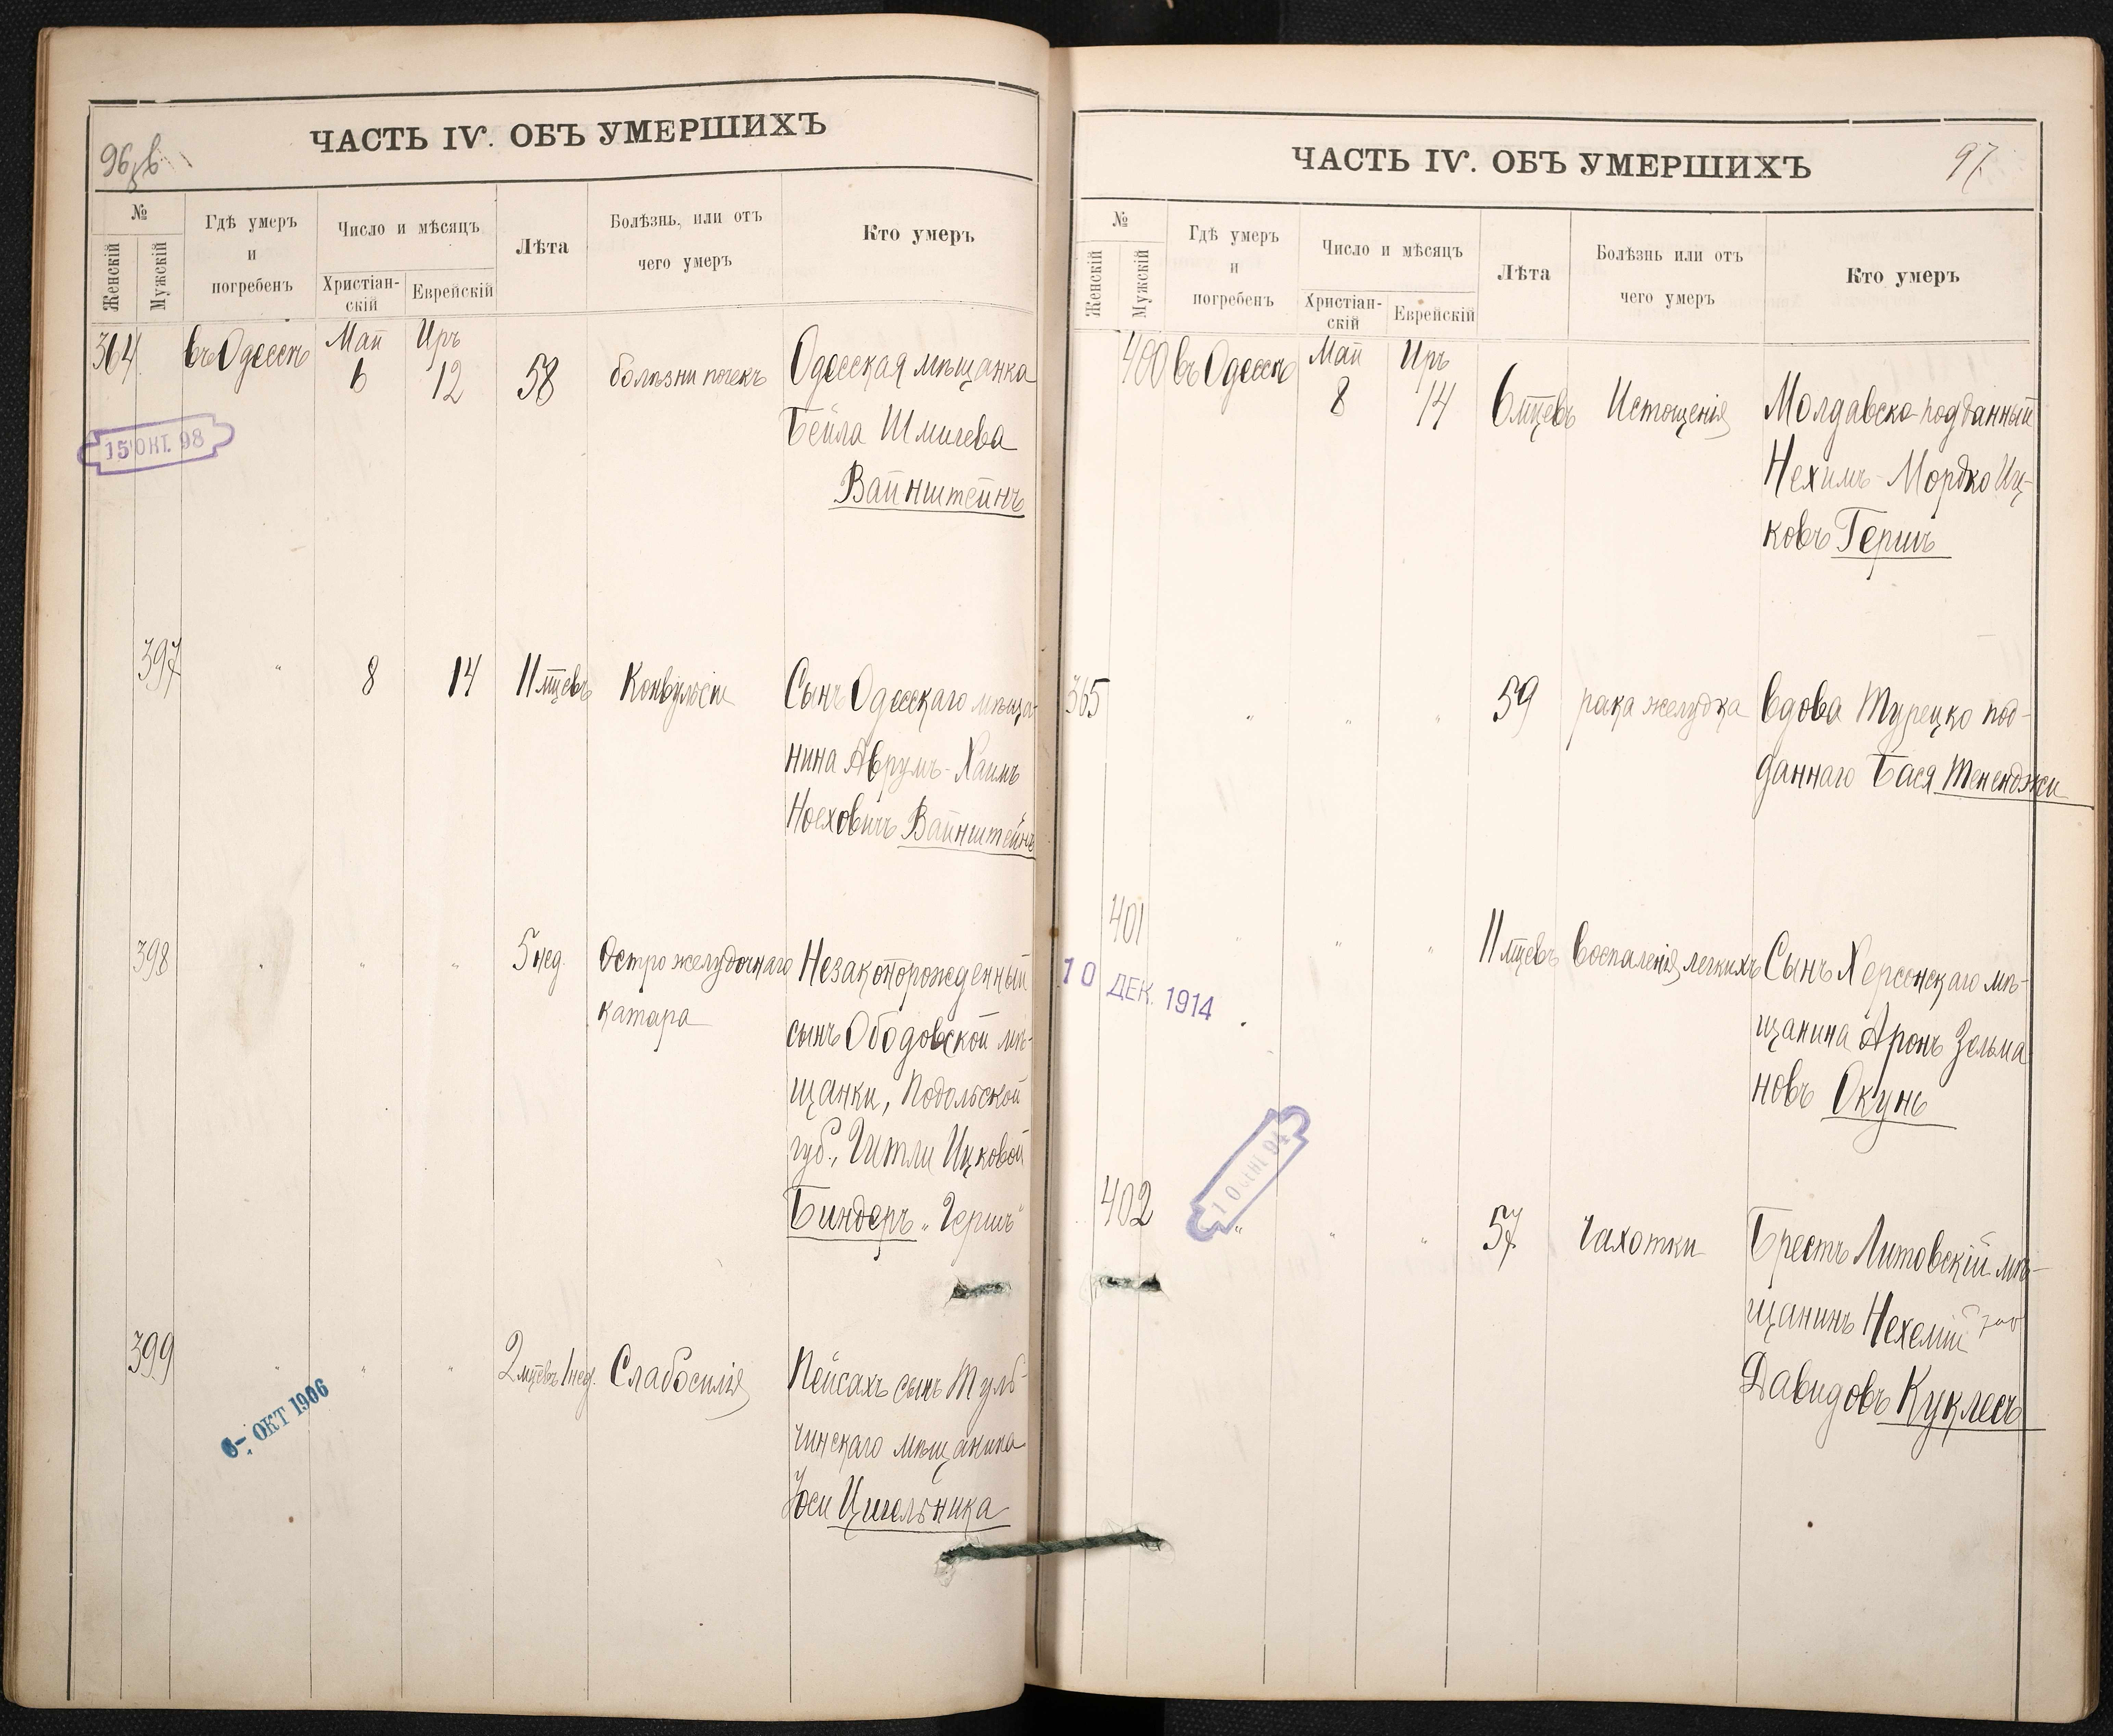 ЧАСТЬ IV. ОБЪ УМЕРШИХЪ
96
№
Женскій
Мужскій
Гдѣ умеръ
и
погребенъ
Число и мѣсяцъ
Христіан-
скій
Еврейскій
Лѣта
Болѣзнь, или отъ
чего умеръ
Кто умеръ
364 въ Одессѣ Май 6 Иръ 12 58 болѣзни почекъ Одесская мѣщанка
Бейла Шмилева
Вайнштейнъ
15 ОКТ. 98
397 " 8 14 11 мцевъ Конвульсіи Сынъ Одесскаго мѣща-
нина Аврумъ-Хаимъ
Ноеховичъ Вайнштейнъ
398 " " " 5 нед. Остро желудочнаго Незаконорожденный
катара сынъ Ободовской мѣ-
щанки, Подольской
губ., Гитли Ицковой
Биндеръ „Гершъ"
399 " " " 2 мцевъ 1 нед. Слабосилія Пейсахъ сынъ Туль-
чинскаго мѣщанина
Іоси Цигельника
6- ОКТ 1906
ЧАСТЬ IV. ОБЪ УМЕРШИХЪ
97
№
Женскій
Мужскій
Гдѣ умеръ
и
погребенъ
Число и мѣсяцъ
Христіан-
скій
Еврейскій
Лѣта
Болѣзнь или отъ
чего умеръ
Кто умеръ
400 въ Одессѣ Май 8 Иръ 14 6 мцевъ Истощенія Молдавско-подданный
Нехимъ-Мордко Иц-
ковъ Гершъ
365 " " " 59 рака желудка Вдова Турецко под-
даннаго Бася Тененджи
401 " " " 11 мцевъ Воспаленія легкихъ Сынъ Херсонскаго мѣ-
щанина Аронъ Зельма-
новъ Окунь
10 ДЕК. 1914
402 " " " 57 Чахотки Брестъ Литовскій мѣ-
щанинъ Нехемій
Давидовъ Куклесъ